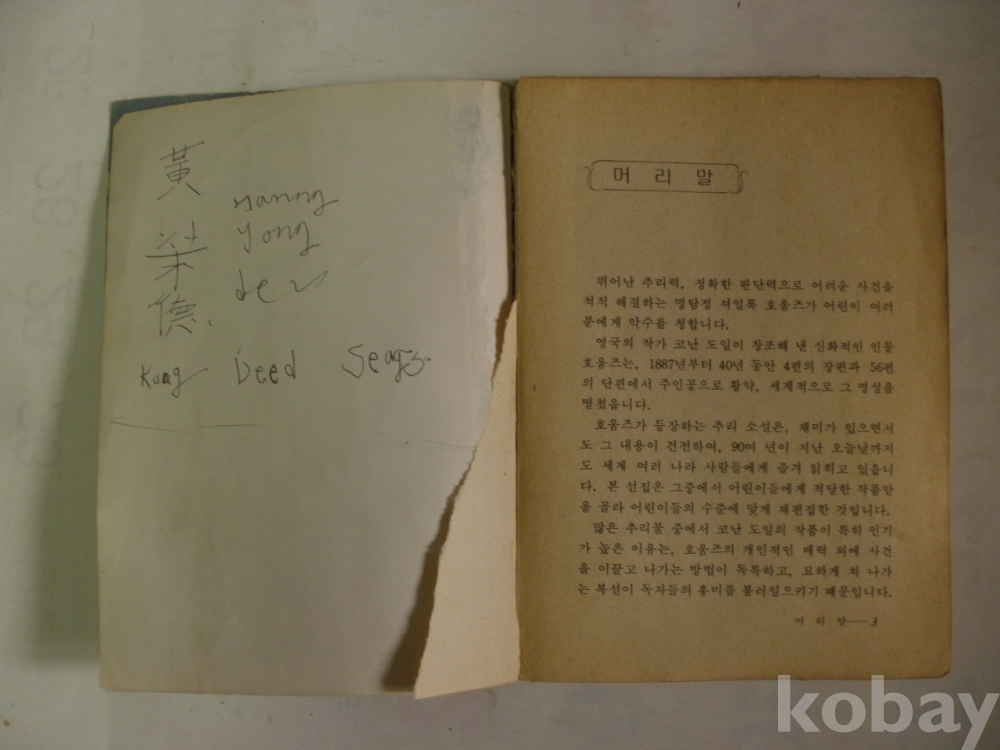 黃
榮
德
yong
Kong Deed
머 리 말
뛰어난 추리력, 정확한 판단력으로 어려운 사건을
척척 해결하는 명탐정 셔얼록 호움즈가 어린이 여러
분에게 악수를 청합니다.
영국의 작가 코난 도일이 창조해 낸 신화적인 인물
호움즈는, 1887년부터 40년 동안 4편의 장편과 56편
의 단편에서 주인공으로 활약, 세계적으로 그 명성을
떨쳤읍니다.
호움즈가 등장하는 추리 소설은, 재미가 있으면서
도 그 내용이 건전하여, 90여 년이 지난 오늘날까지
도 세계 여러 나라 사람들에게 즐겨 읽히고 있읍니
다. 본 선집은 그중에서 어린이들에게 적당한 작품만
을 골라 어린이들의 수준에 맞게 재편집한 것입니다.
많은 추리물 중에서 코난 도일의 작품이 특히 인기
가 높은 이유는, 호움즈의 개인적인 매력 외에 사건
을 이끌고 나가는 방법이 독특하고, 묘하게 쳐 나가
는 복선이 독자들의 흥미를 불러일으키기 때문입니다.
머 리 말……3
kobay